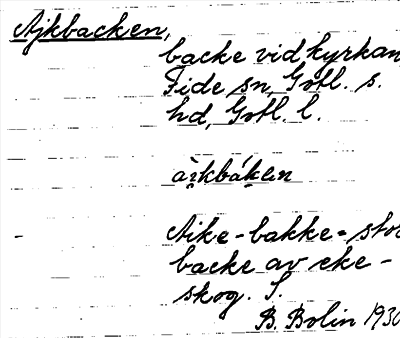 Ajkbacken,
backe vid kyrkan
Fide sn, Gotl. s.
hd, Gotl. l.
Aike-bakke=
backe av eke-
skog. S.
B. Bolin 1930